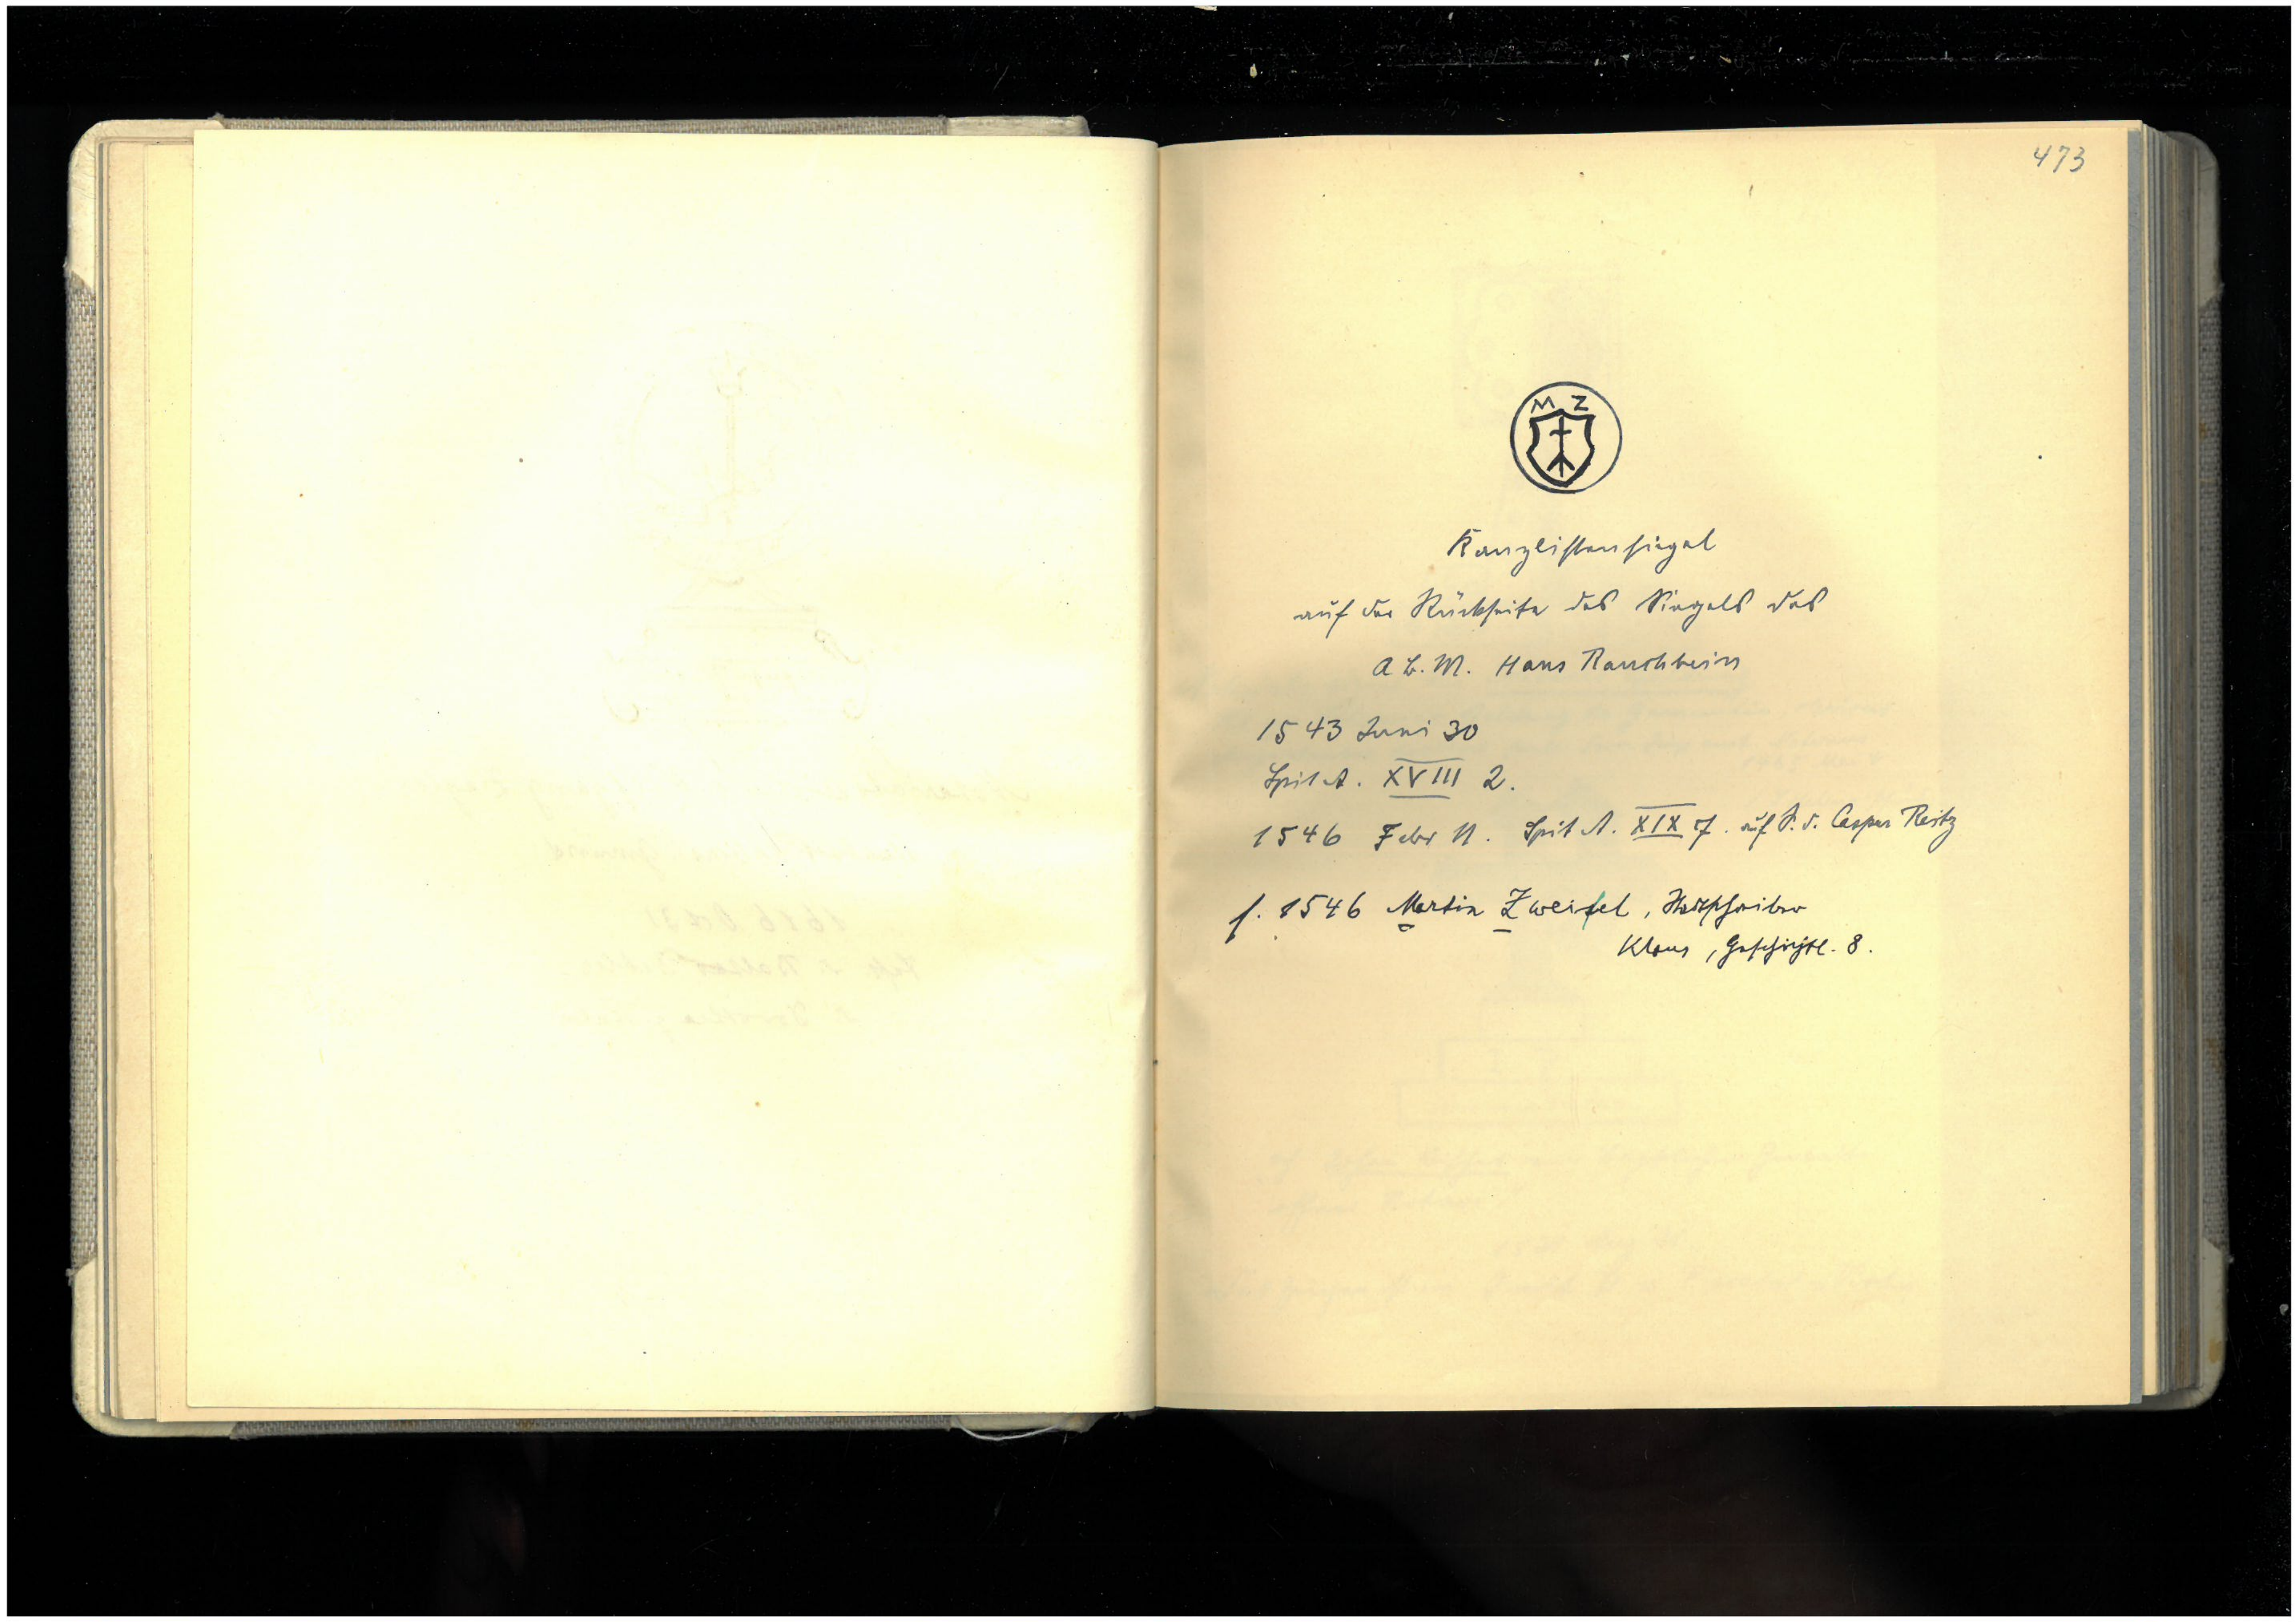 473
M Z
Kanzlistensiegel
auf der Rückseite des Siegels des
A B.M. Hans Rauchbein
1543 Juni 30
Spit A. XVIII 2.
1546 Febr 11. Spit A. XIX 7. auf S. d. Caspar Reitz
f. 1546 Martin Zweifel, Stadtschreiber
Klaus, Geschichtl. 8.